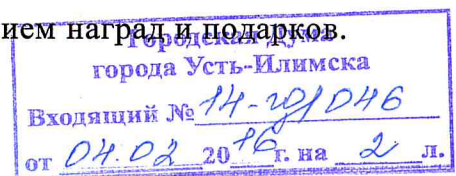 ием наград и подарков.
Городская Дума
города Усть-Илимска
Входящий № 14-го/046
от 04.02 2016 г. на 2 л.